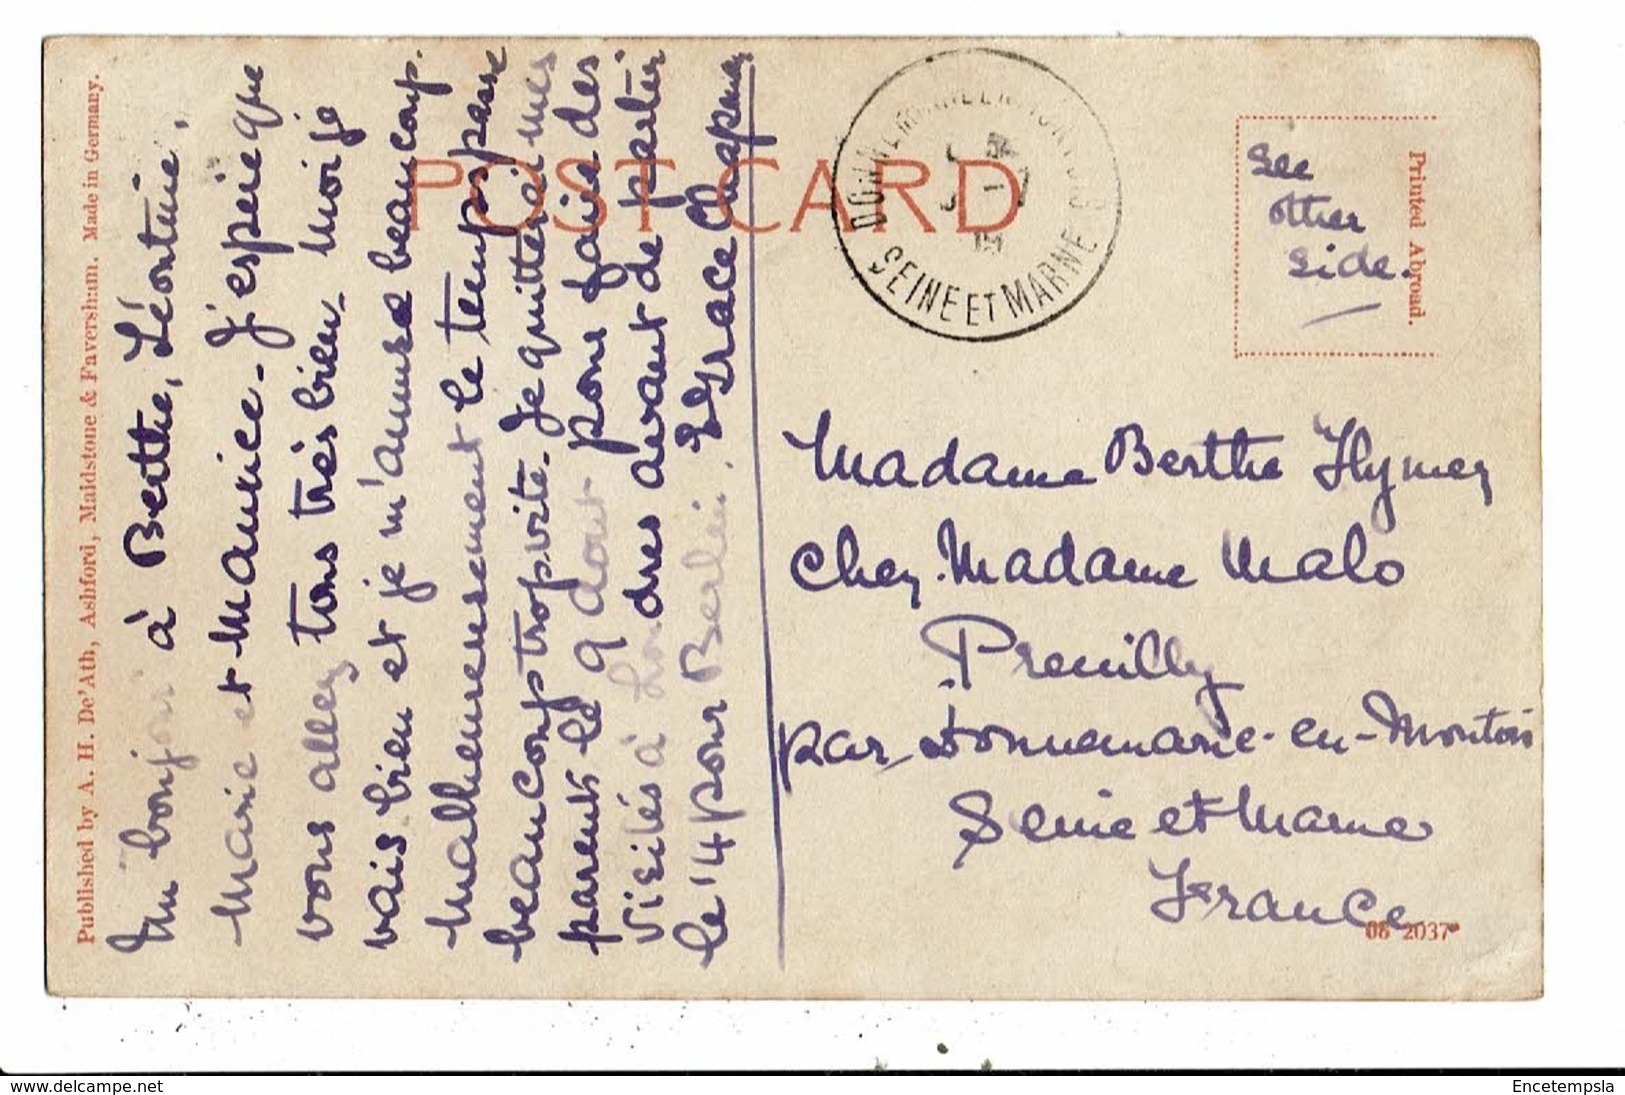 Published by A. H. De'Ath, Ashford, Maidstone & Faversham. Made in Germany.
Un bonjour à Berthe, Léontine,
Marie et Maurice. J'espère que
vous allez tous très bien. Moi je
vais bien et je m'amuse beaucoup.
Malheureusement le temps passe
beaucoup trop vite. Je quitterai mes
parents le 9 dout pour faire des
visites à Londres avant de partir
le 14 pour Berlin. Grace Chapman
POST CARD
DONNEMARIE EN MONTOIS
SEINE ET MARNE
See
other
side.
Printed Abroad.
Madame Berthe Hymez
chez Madame Malo
Preuilly
par Donnemarie-en-Montois
Seine et Marne
France
08 2037
www.delcampe.net
Encetempsla